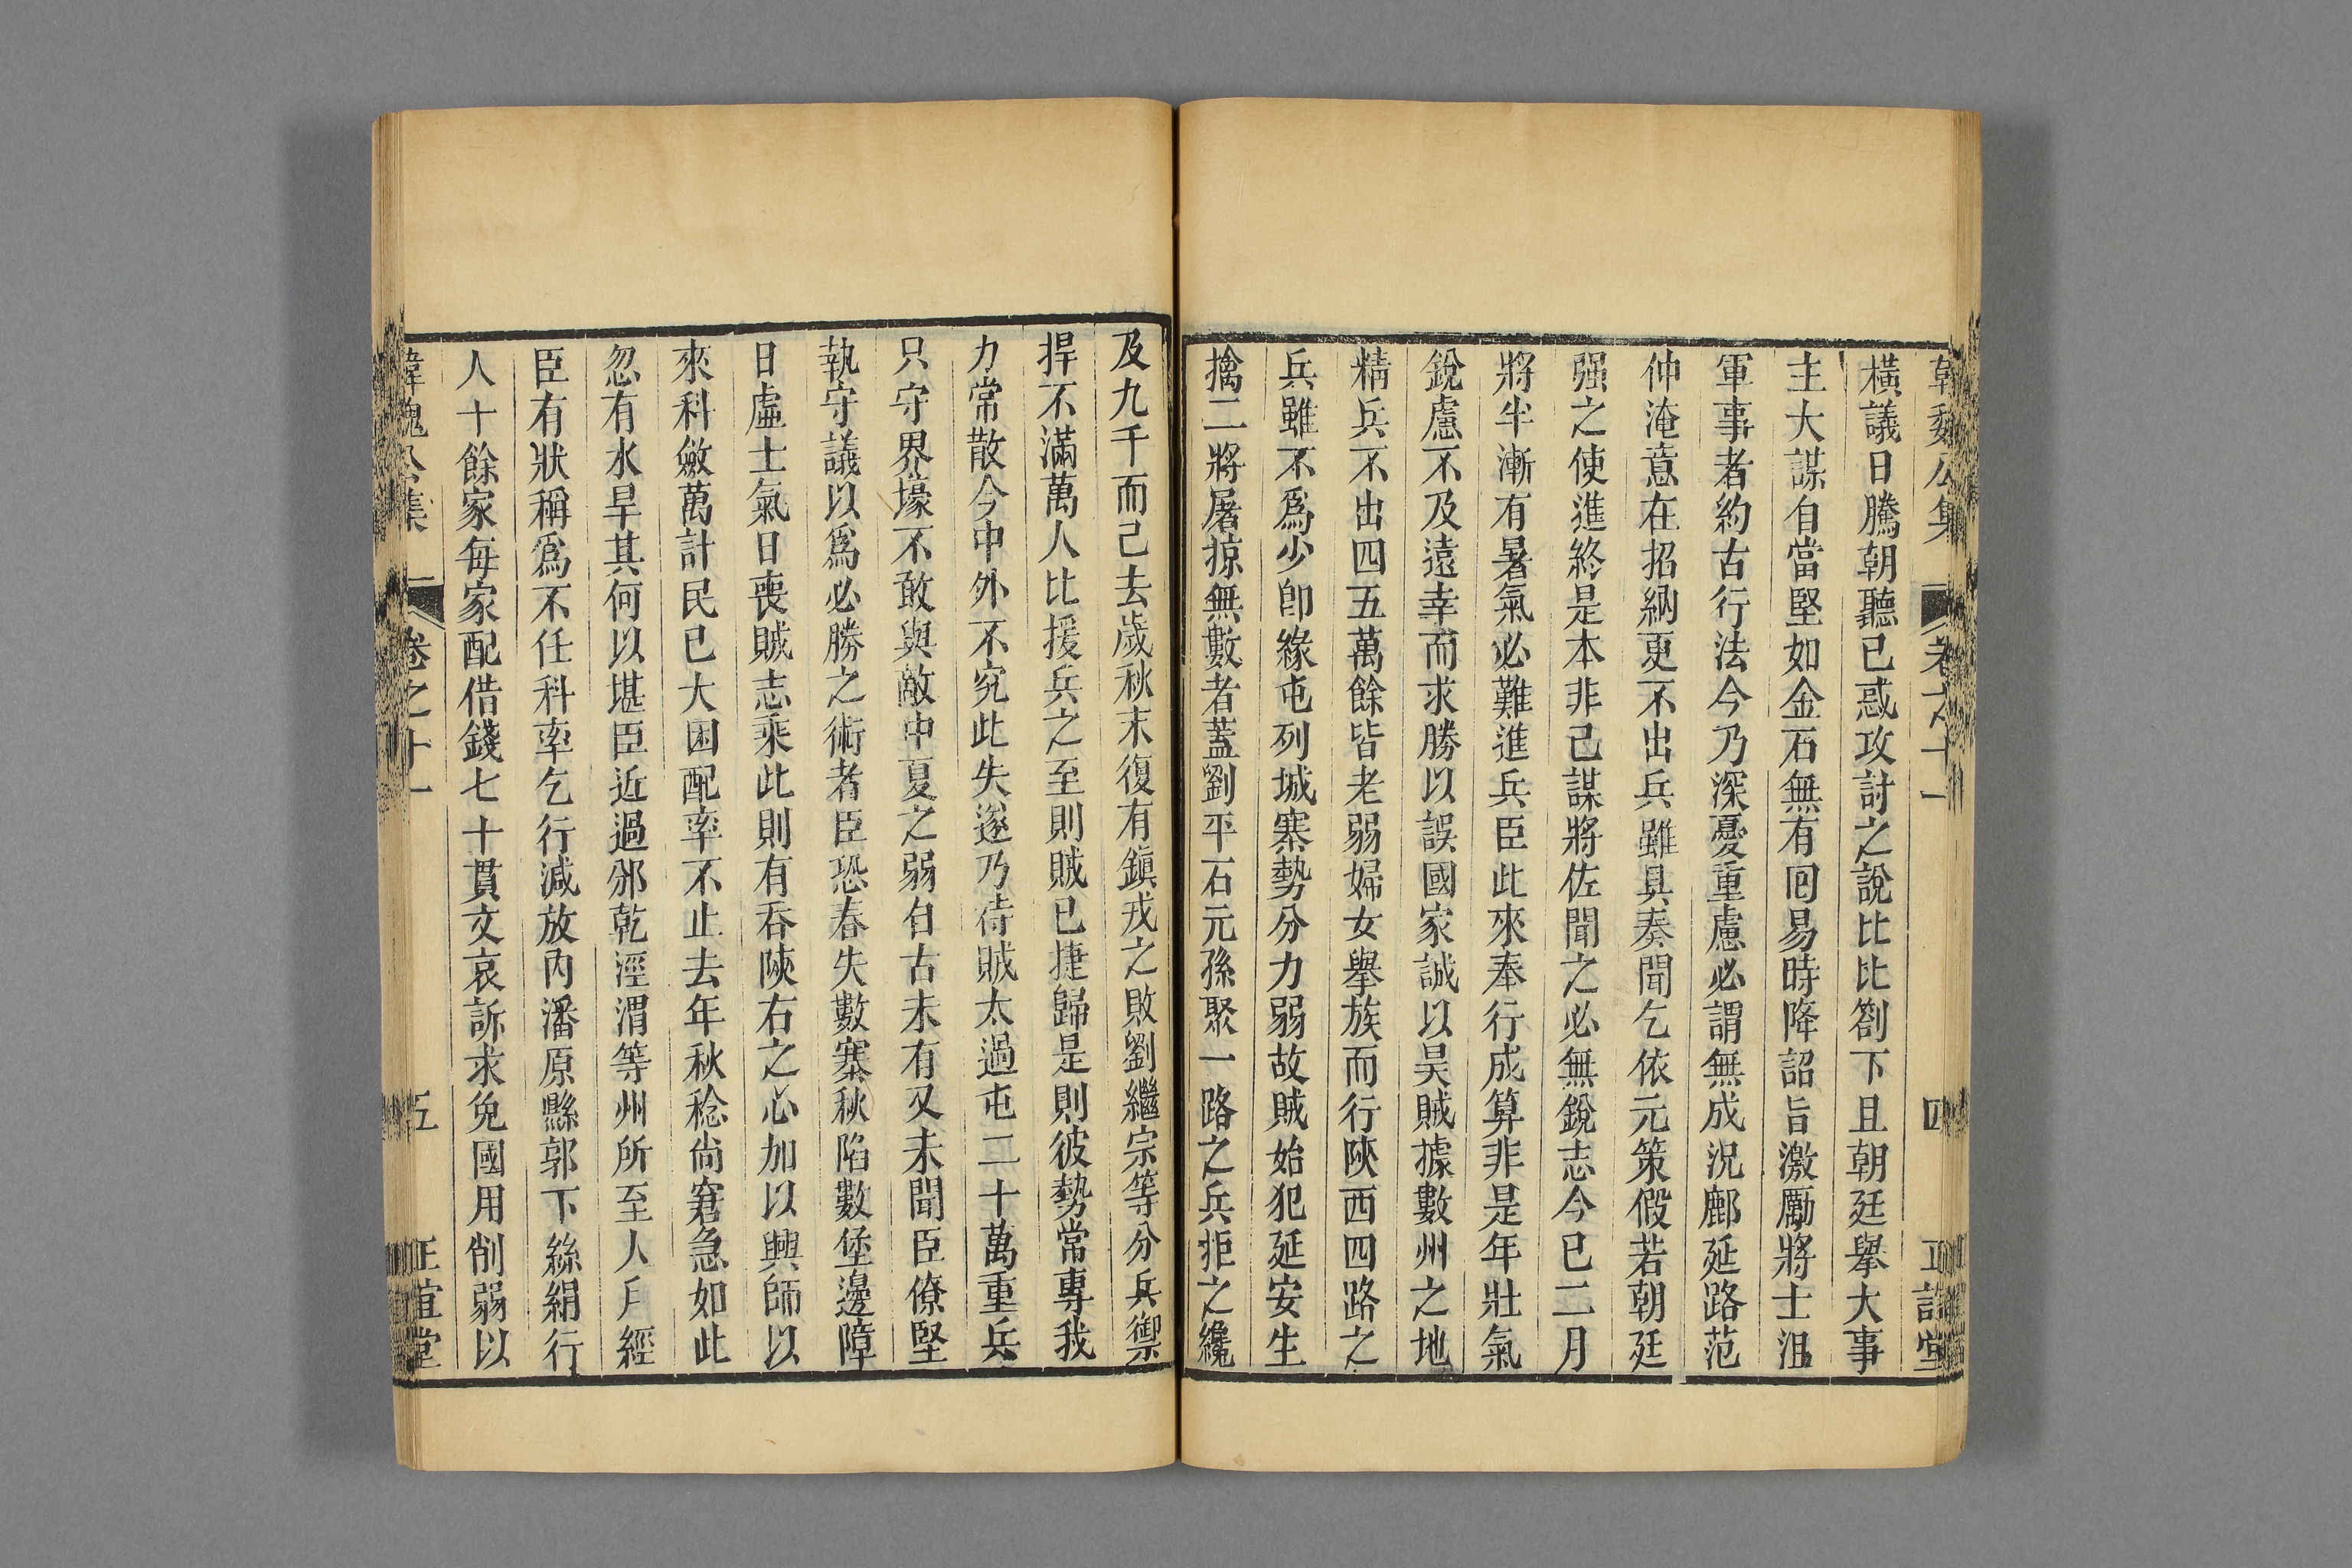 韓魏公集 卷之十一 四 正誼堂
橫議日騰朝聽已惑攻討之說比比劄下且朝廷舉大事
主大謀自當堅如金石無有囘易時降詔旨激勵將士沮
軍事者約古行法今乃深憂重慮必謂無成況鄜延路范
仲淹意在招納更不出兵雖具奏聞乞依元策假若朝廷
强之使進終是本非己謀將佐聞之必無銳志今已二月
將半漸有暑氣必難進兵臣此來奉行成算非是年壯氣
銳慮不及遠幸而求勝以誤國家誠以昊賊據數州之地
精兵不出四五萬餘皆老弱婦女舉族而行陝西四路之
兵雖不爲少卽緣屯列城寨勢分力弱故賊始犯延安生
擒二將屠掠無數者蓋劉平石元孫聚一路之兵拒之纔
及九千而已去歲秋末復有鎭戎之敗劉繼宗等分兵禦
捍不滿萬人比援兵之至則賊已捷歸是則彼勢常專我
力常散今中外不究此失遂乃待賊太過屯二十萬重兵
只守界壕不敢與敵中夏之弱自古未有又未聞臣僚堅
執守議以爲必勝之術者臣恐春失數寨秋陷數堡邊障
日虛士氣日喪賊志乘此則有吞陝右之心加以興師以
來科斂萬計民已大困配率不止去年秋稔尙窘急如此
忽有水旱其何以堪臣近過邠乾涇渭等州所至人戶經
臣有狀稱爲不任科率乞行減放內潘原縣郭下絲絹行
人十餘家每家配借錢七十貫文哀訴求免國用削弱以
韓魏公集 卷之十一 五 正誼堂